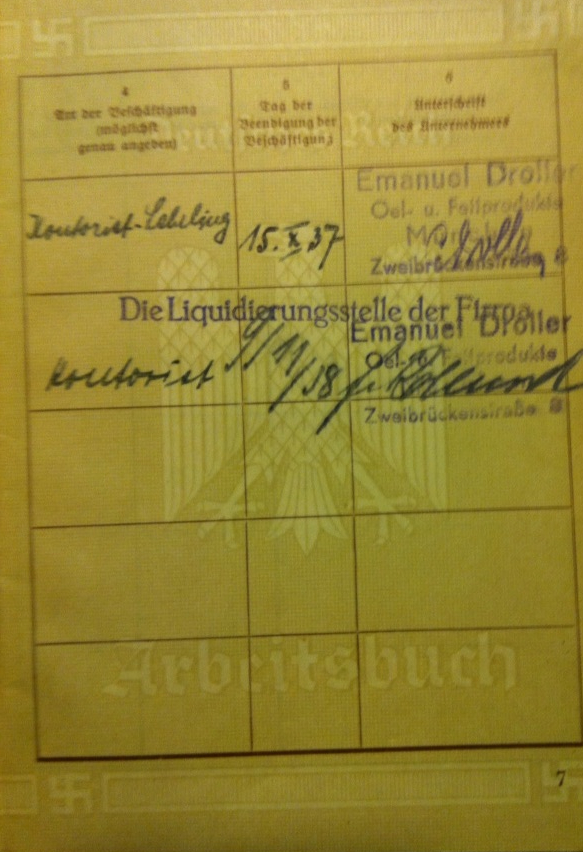 Deutsches Reich
4
Art der Beschäftigung
(möglichst
genau angeben)
5
Tag der
Beendigung der
Beschäftigung
6
Unterschrift
des Unternehmers
Kontorist-Lehrling
15.X.37
Emanuel Droller
Oel- u. Fettprodukte
München
Zweibrückenstraße 8
Die Liquidierungsstelle der Firma
Kontorist
9/11/38
Emanuel Droller
Oel- u. Fettprodukte
Zweibrückenstraße 8
Arbeitsbuch
7